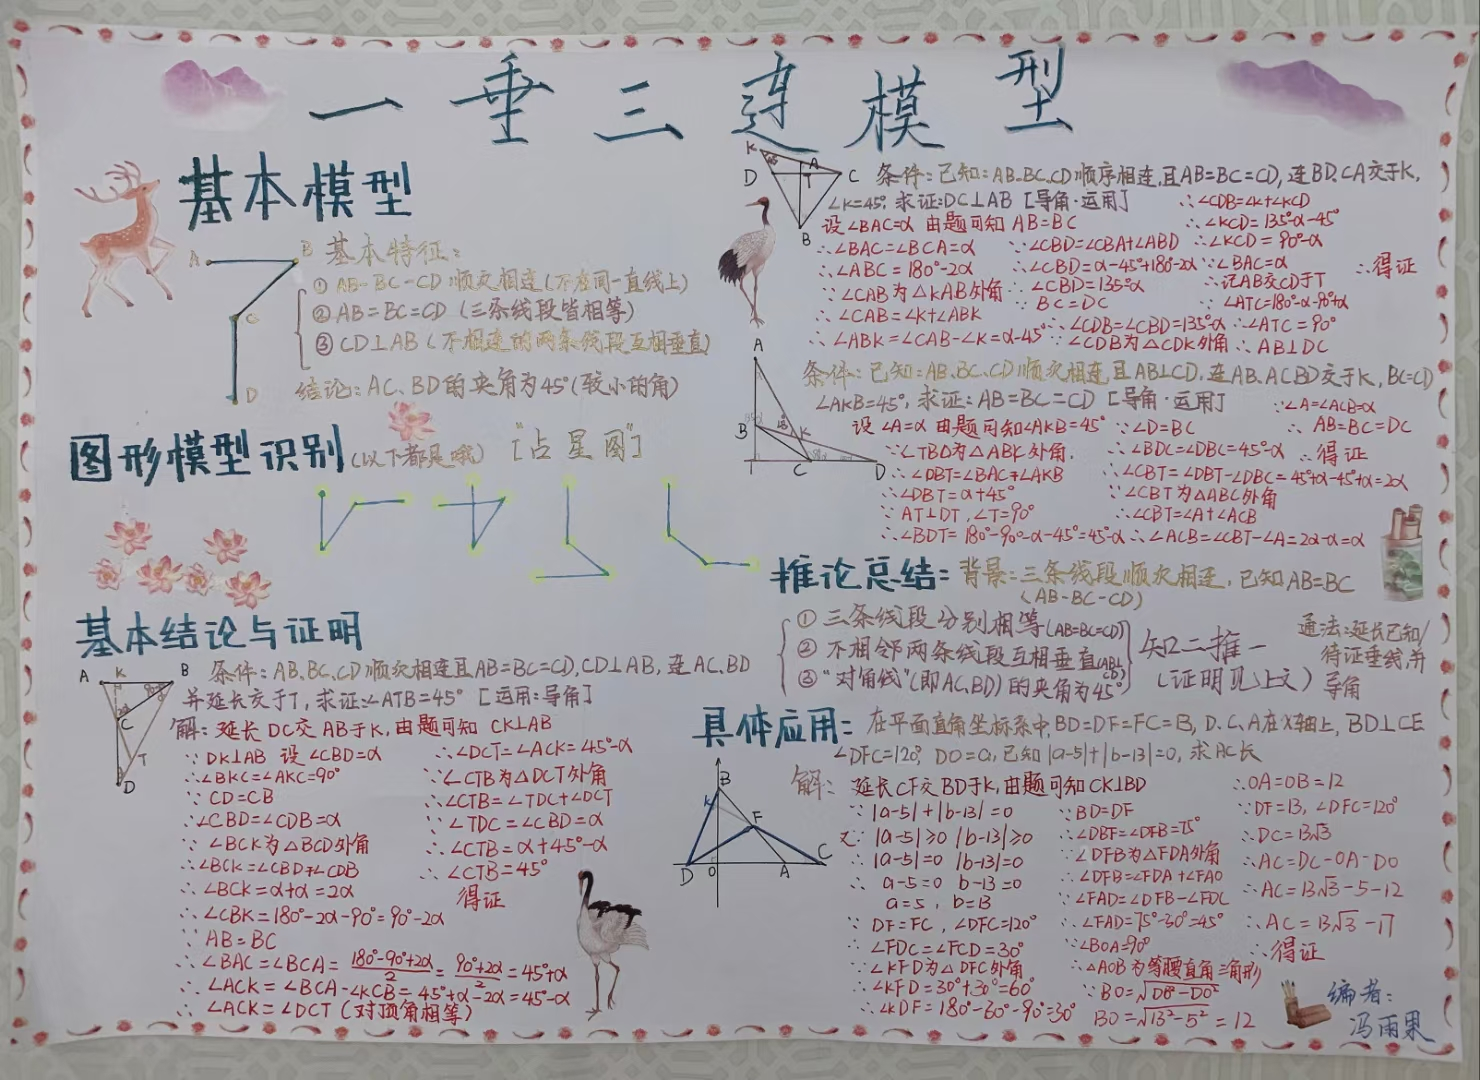 一垂三连模型
基本模型
A
B
C
D
基本特征:
① AB-BC-CD 顺次相连(不在同一直线上)
② AB=BC=CD (三条线段皆相等)
③ CD⊥AB (不相连的两条线段互相垂直)
结论: AC、BD的夹角为45°(较小的角)
图形模型识别(以下都是哦) ["占星图"]
基本结论与证明
A K B
C
T
D
条件: AB、BC、CD顺次相连且AB=BC=CD, CD⊥AB, 连AC、BD
并延长交于T, 求证:∠ATB=45° [运用:导角]
解: 延长DC交AB于K, 由题可知 CK⊥AB
∵ DK⊥AB 设∠CBD=α
∴∠BKC=∠AKC=90°
∵ CD=CB
∴∠CBD=∠CDB=α
∵ ∠BCK为△BCD外角
∴∠BCK=∠CBD+∠CDB
∴ ∠BCK=α+α=2α
∴ ∠CBK=180°-2α-90°=90°-2α
∵ AB=BC
∴ ∠BAC=∠BCA= (180°-90°+2α)/2 = (90°+2α)/2 = 45°+α
∴ ∠ACK=∠BCA-∠KCB=45°+α-2α=45°-α
∴ ∠ACK=∠DCT(对顶角相等)
∴∠DCT=∠ACK=45°-α
∵∠CTB为△DCT外角
∴∠CTB=∠TDC+∠DCT
∵ ∠TDC=∠CBD=α
∴∠CTB=α+45°-α
∴ ∠CTB=45°
得证
K
A
D T C
B
条件:已知:AB、BC、CD顺序相连,且AB=BC=CD, 连BD、CA交于K,
∠K=45°, 求证:DC⊥AB [导角·运用]
设∠BAC=α 由题可知 AB=BC
∴∠BAC=∠BCA=α
∴∠ABC=180°-2α
∵∠CAB为△KAB外角
∴ ∠CAB=∠K+∠ABK
∴ ∠ABK=∠CAB-∠K=α-45°
∵∠CBD=∠CBA+∠ABD
∴∠CBD=α-45°+180°-2α
∴ ∠CBD=135°-α
∵ BC=DC
∴∠CDB=∠CBD=135°-α
∵∠CDB为△CDK外角
∴∠CDB=∠K+∠KCD
∴∠KCD=135°-α-45°
∴∠KCD=90°-α
∵∠BAC=α
∴记AB交CD于T
∴ ∠ATC=180°-α-90°+α
∴∠ATC=90°
∴ AB⊥DC
∴得证
A
B K
C D
条件:已知:AB、BC、CD顺次相连,且AB⊥CD, 连AB、ACBD交于K, BC=CD
∠AKB=45°, 求证:AB=BC=CD [导角·运用]
设∠A=α 由题可知∠AKB=45°
∵∠TBD为△ABK外角
∴∠DBT=∠BAC+∠AKB
∴∠DBT=α+45°
∵ AT⊥DT, ∠T=90°
∴∠BDT=180°-90°-α-45°=45°-α
∵∠D=BC
∴ ∠BDC=∠DBC=45°-α
∴∠CBT=∠DBT-∠DBC=45°+α-45°+α=2α
∵∠CBT为△ABC外角
∴∠CBT=∠A+∠ACB
∴∠ACB=∠CBT-∠A=2α-α=α
∵∠A=∠ACB=α
∴ AB=BC=DC
∴得证
推论总结: 背景:三条线段顺次相连, 已知AB=BC
(AB-BC-CD)
① 三条线段分别相等(AB=BC=CD)
② 不相邻两条线段互相垂直(AB⊥CD)
③ "对角线"(即AC、BD)的夹角为45°
知二推一
(证明见上文)
通法:延长已知/
待证垂线,并
导角
具体应用: 在平面直角坐标系中, BD=DF=FC=B, D、C、A在X轴上, BD⊥CE
∠DFC=120°, DO=a, 已知|a-5|+|b-13|=0, 求AC长
B
K
F
D O A C
解: 延长CF交BD于K, 由题可知CK⊥BD
∵ |a-5|+|b-13|=0
又∵ |a-5|≥0 |b-13|≥0
∴ |a-5|=0 |b-13|=0
∴ a-5=0 b-13=0
a=5, b=13
∵ DF=FC, ∠DFC=120°
∴ ∠FDC=∠FCD=30°
∵∠KFD为△DFC外角
∴∠KFD=30°+30°=60°
∴∠KDF=180°-60°-90°=30°
∵BD=DF
∴∠DBF=∠DFB=75°
∵∠DFB为△FDA外角
∴∠DFB=∠FDA+∠FAD
∴∠FAD=∠DFB-∠FDC
∴∠FAD=75°-30°=45°
∵∠BOA=90°
∴△AOB为等腰直角三角形
∵BO=√(DB²-DO²)
BO=√(13²-5²)=12
∴OA=OB=12
∵DF=13, ∠DFC=120°
∴DC=13√3
∴AC=DC-OA-DO
∴AC=13√3-5-12
∴AC=13√3-17
∴得证
编者:
冯雨果